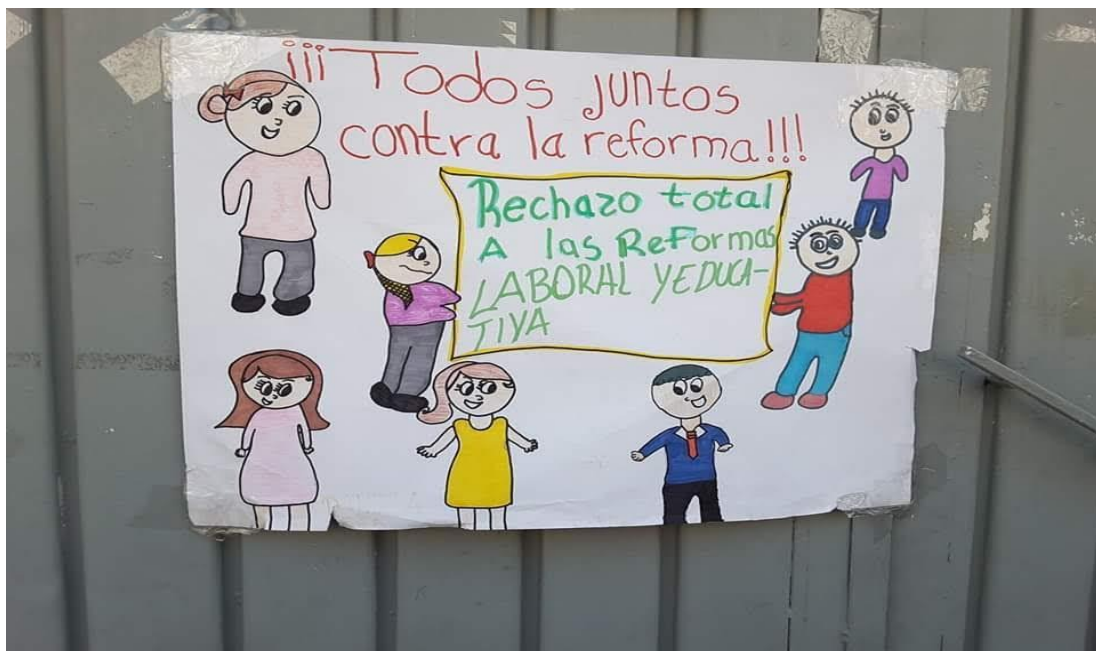 ¡¡¡Todos juntos
contra la reforma!!!
Rechazo total
A las Reformas
LABORAL Y EDUCA-
TIVA